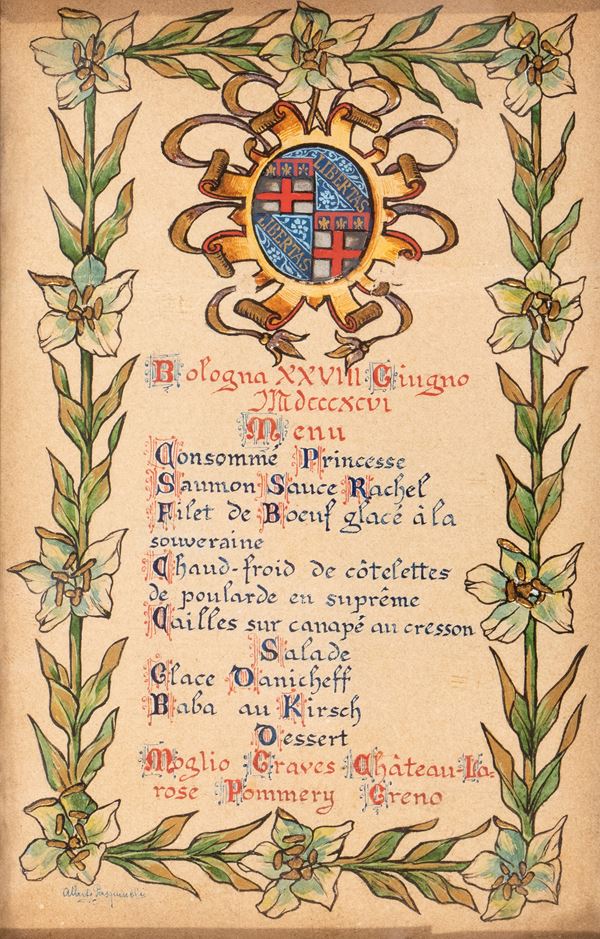 LIBERTAS
LIBERTAS
Bologna XXVIII Giugno
MDCCCXCVI
Menu
Consommé Princesse
Saumon Sauce Rachel
Filet de Boeuf glacé à la
souveraine
Chaud-froid de côtelettes
de poularde en suprême
Cailles sur canapé au cresson
Salade
Glace Danicheff
Baba au Kirsch
Dessert
Moglio Graves Château-La-
rose Pommery Greno